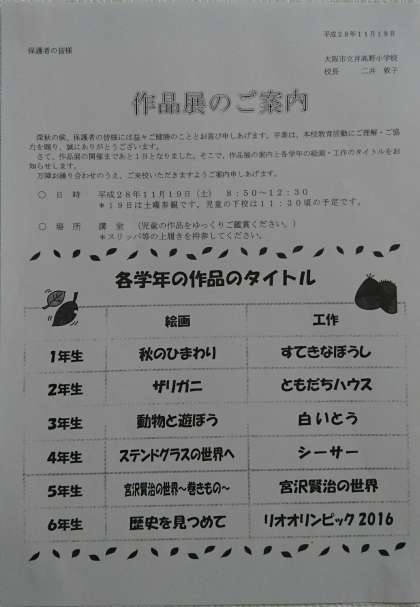 平成２８年１１月１８日
保護者の皆様
大阪市立井高野小学校
校長　二井　敦子
作品展のご案内
深秋の候、保護者の皆様には益々ご健勝のこととお喜び申しあげます。平素は、本校教育活動にご理解・ご協
力を賜り、誠にありがとうございます。
さて、作品展の開催まであと１日となりました。そこで、作品展の案内と各学年の絵画・工作のタイトルをお
知らせします。
万障お繰り合わせのうえ、ご来校いただきますようご案内申しあげます。
○　日　時　平成２８年１１月１９日（土）　８：５０～１２：３０
＊１９日は土曜参観です。児童の下校は１１：３０頃の予定です。
○　場　所　講　堂　（児童の作品をゆっくりご鑑賞ください。）
＊スリッパ等の上履きを持参してください。
各学年の作品のタイトル
絵画　工作
1年生　秋のひまわり　すてきなぼうし
2年生　ザリガニ　ともだちハウス
3年生　動物と遊ぼう　白いとう
4年生　ステンドグラスの世界へ　シーサー
5年生　宮沢賢治の世界～巻きもの～　宮沢賢治の世界
6年生　歴史を見つめて　リオオリンピック2016